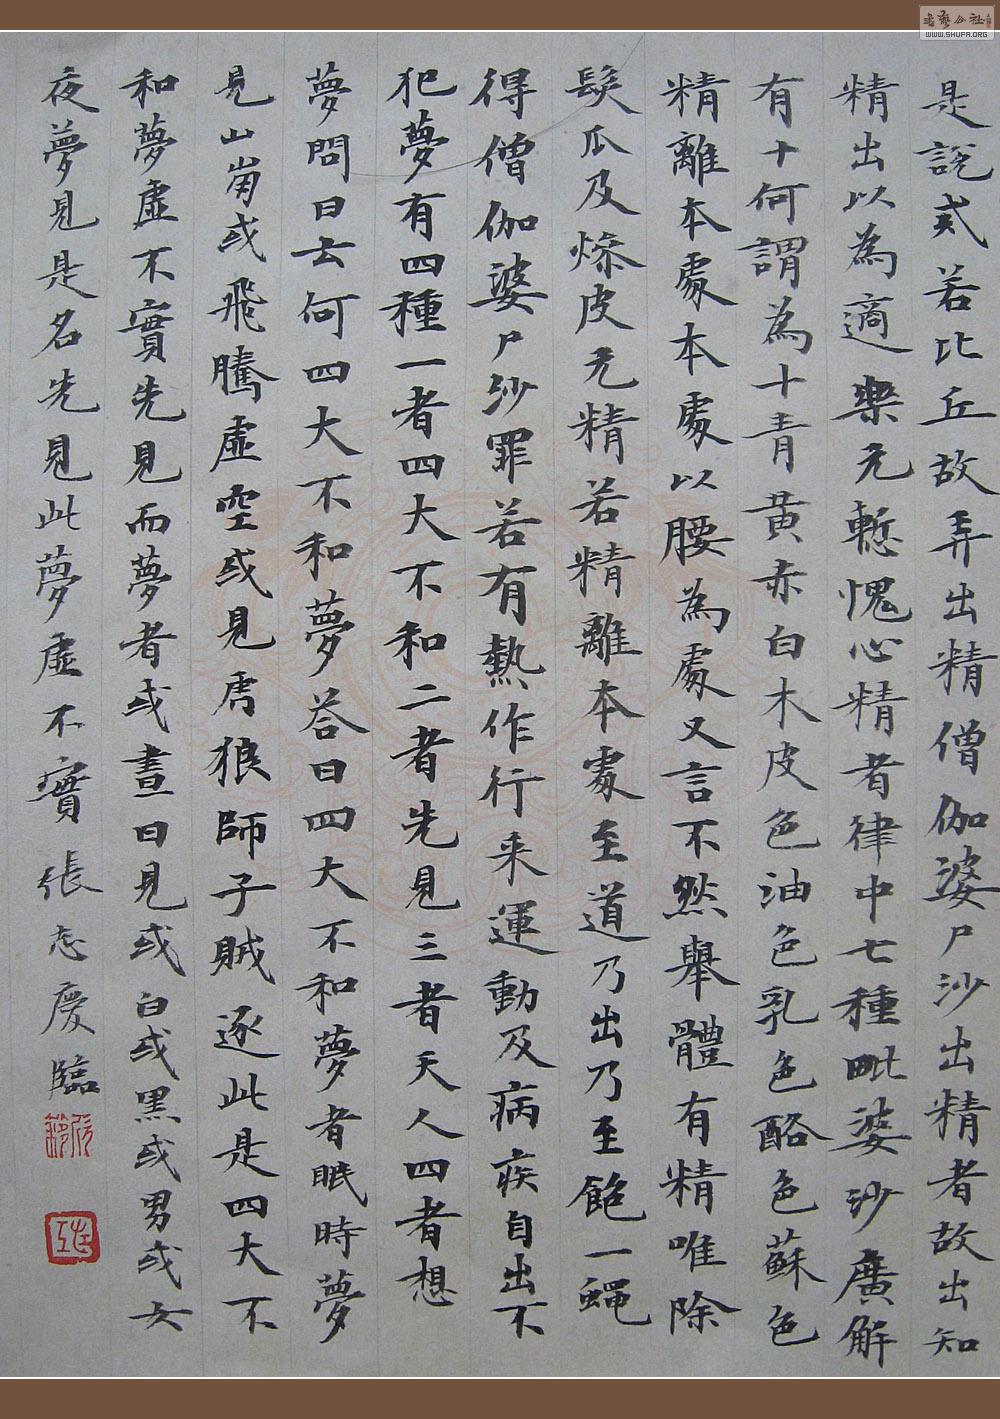 是說戒若比丘故弄出精僧伽婆尸沙出精者故出知
精出以為適樂无慙愧心精者律中七種毗婆沙廣解
有十何謂為十青黃赤白木皮色油色乳色酪色蘇色
精離本處本處以腰為處又言不然舉體有精唯除
髮瓜及燥皮无精若精離本處至道乃出乃至飽一蠅
得僧伽婆尸沙罪若有熱作行来運動及病疾自出不
犯夢有四種一者四大不和二者先見三者天人四者想
夢問曰云何四大不和夢答曰四大不和夢者眠時夢
見山崩或飛騰虛空或見虎狼師子賊逐此是四大不
和夢虛不實先見而夢者或晝日見或白或黑或男或女
夜夢見是名先見此夢虛不實張志慶臨
WWW.SHUFA.ORG